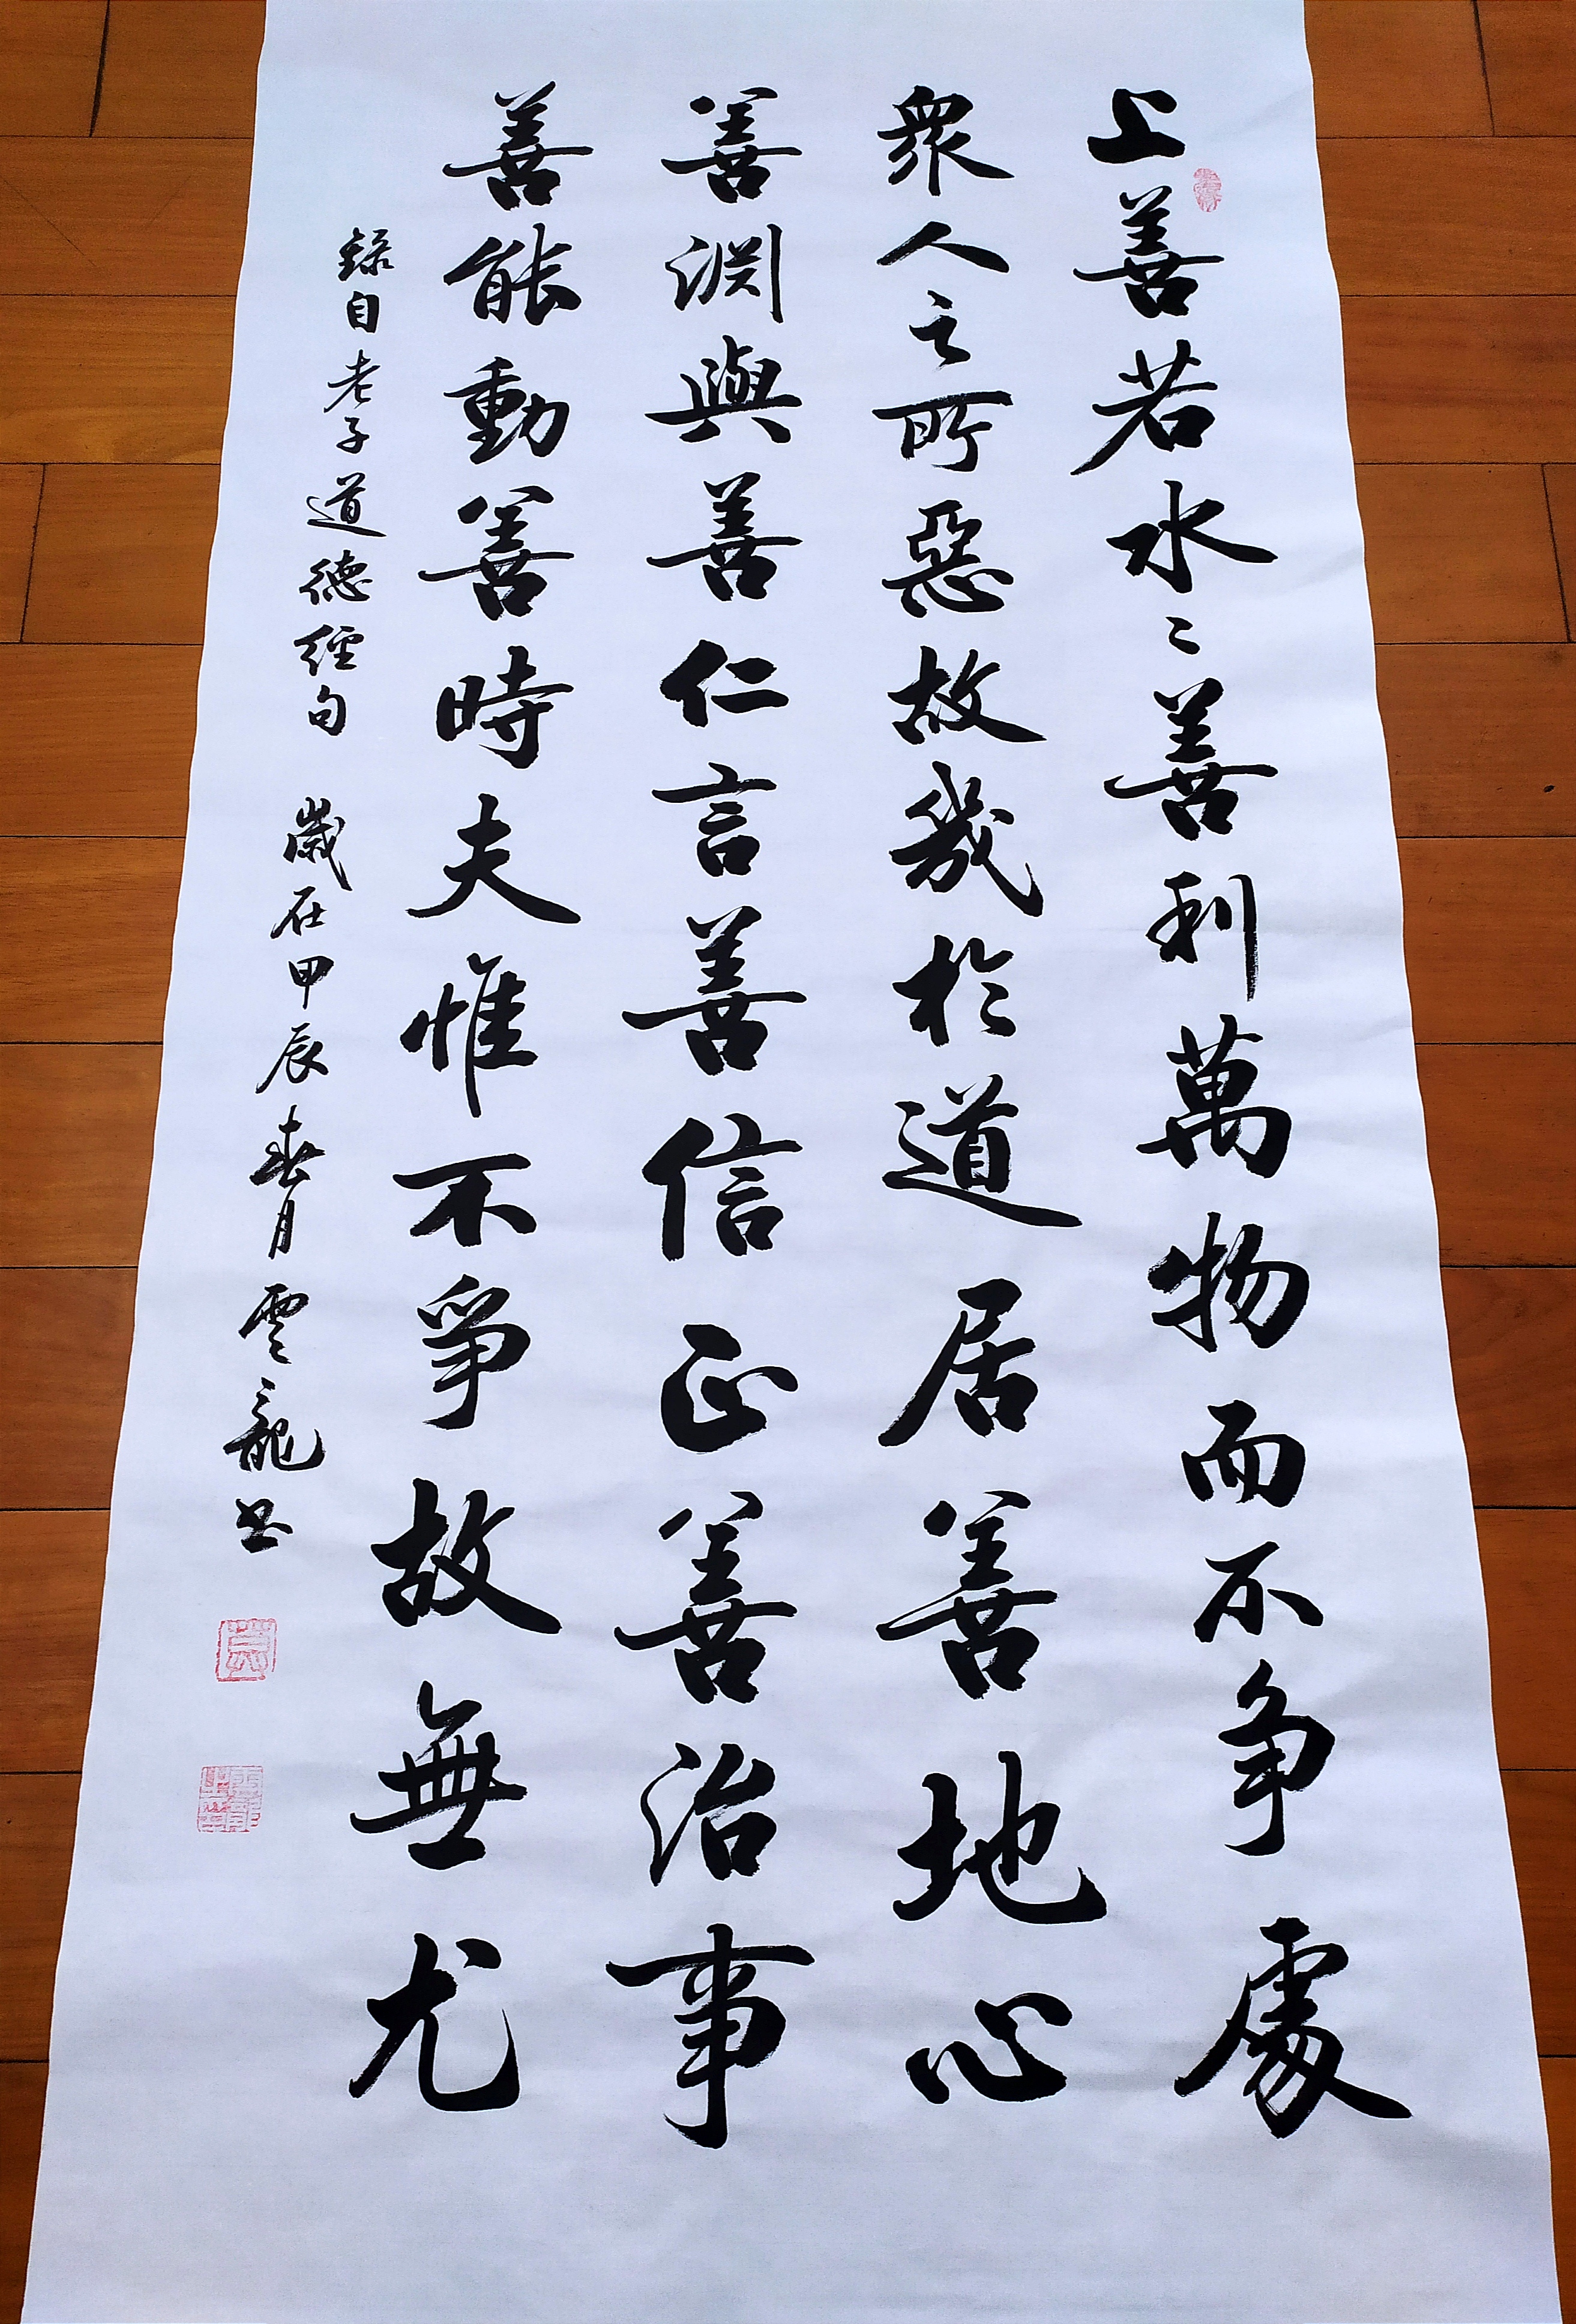 上善若水〻善利萬物而不争處
衆人之所惡故幾於道居善地心
善淵與善仁言善信正善治事
善能動善時夫惟不爭故無尤
錄自老子道德經句 歲在甲辰春月雲龍书